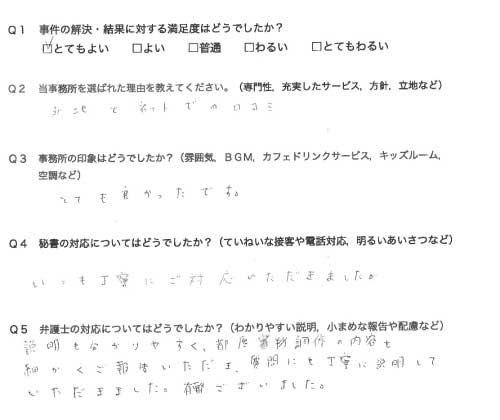 Q1 事件の解決・結果に対する満足度はどうでしたか？
☑とてもよい □よい □普通 □わるい □とてもわるい
Q2 当事務所を選ばれた理由を教えてください。（専門性，充実したサービス，方針，立地など）
立地とネットでの口コミ
Q3 事務所の印象はどうでしたか？（雰囲気，BGM，カフェドリンクサービス，キッズルーム，
空調など）
とても良かったです。
Q4 秘書の対応についてはどうでしたか？（ていねいな接客や電話対応，明るいあいさつなど）
いつも丁寧にご対応いただきました
Q5 弁護士の対応についてはどうでしたか？（わかりやすい説明，小まめな報告や配慮など）
説明も分かりやすく、都度書類の内容も
細かくご報告いただき、質問にも丁寧に説明して
いただきました。有難うございました。